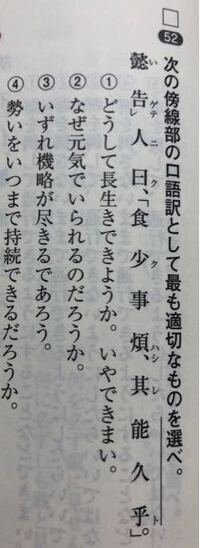 52
次の傍線部の口語訳として最も適切なものを選べ。
いゲテニククハシレト
懿告レ人曰、「食少事煩、其能久乎。」
① どうして長生きできようか。いやできまい。
② なぜ元気でいられるのだろうか。
③ いずれ機略が尽きるであろう。
④ 勢いをいつまで持続できるだろうか。